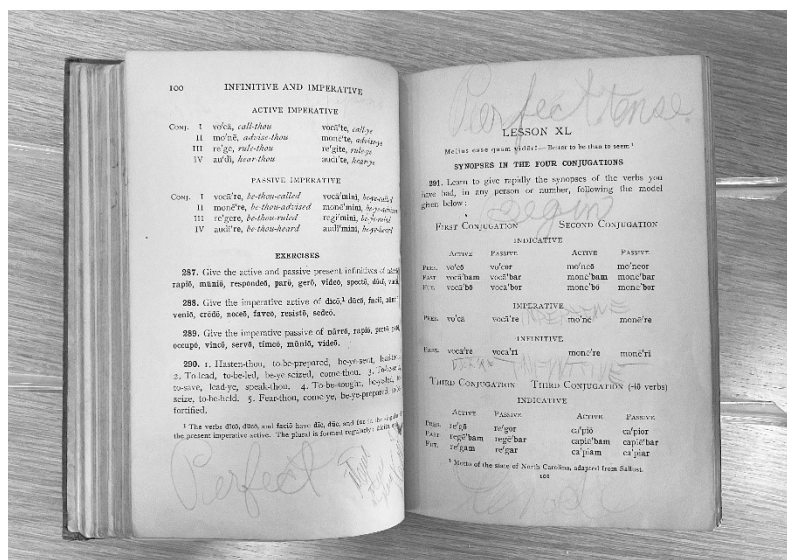 100 INFINITIVE AND IMPERATIVE
ACTIVE IMPERATIVE
CONJ. I vo'cā, call-thou vocā'te, call-ye
II mo'nē, advise-thou monē'te, advise-ye
III re'ge, rule-thou re'gite, rule-ye
IV au'dī, hear-thou audī'te, hear-ye
PASSIVE IMPERATIVE
CONJ. I vocā're, be-thou-called vocā'minī, be-ye-called
II monē're, be-thou-advised monē'minī, be-ye-advised
III re'gere, be-thou-ruled regi'minī, be-ye-ruled
IV audī're, be-thou-heard audī'minī, be-ye-heard
EXERCISES
287. Give the active and passive present infinitives of
rapiō, mūniō, respondeō, parō, gerō, videō, spectō, dūcō,
288. Give the imperative active of dīcō,¹ dūcō, faciō,
veniō, crēdō, noceō, faveō, resistō, sedeō.
289. Give the imperative passive of nārrō, rapiō,
occupō, vincō, servō, timeō, mūniō, videō.
290. 1. Hasten-thou, to-be-prepared, be-ye-sent,
2. To-lead, to-be-led, be-ye seized, come-thou. 3.
to-save, lead-ye, speak-thou. 4. To-be-sought,
seize, to-be-held. 5. Fear-thou, come-ye, be-ye-prepared
fortified.
¹ The verbs dīcō, dūcō, and faciō have dīc, dūc, and fac in the
the present imperative active. The plural is formed regularly:
Perfect
Perfect tense.
LESSON XL
Melius esse quam vidērī — Better to be than to seem¹
SYNOPSES IN THE FOUR CONJUGATIONS
291. Learn to give rapidly the synopses of the verbs you
have had, in any person or number, following the model
given below:
Begin
FIRST CONJUGATION SECOND CONJUGATION
INDICATIVE
ACTIVE PASSIVE ACTIVE PASSIVE
PRES. vo'cō vo'cor mo'neō mo'neor
PAST vocā'bam vocā'bar monē'bam monē'bar
FUT. vocā'bō vocā'bor monē'bō monē'bor
IMPERATIVE
PRES. vo'cā vocā're mo'nē monē're
INFINITIVE
PRES. vocā're vocā'rī monē're monē'rī
INFINITIVE
THIRD CONJUGATION THIRD CONJUGATION (-iō verbs)
INDICATIVE
ACTIVE PASSIVE ACTIVE PASSIVE
PRES. re'gō re'gor ca'piō ca'pior
PAST regē'bam regē'bar capiē'bam capiē'bar
FUT. re'gam re'gar ca'piam ca'piar
¹ Motto of the state of North Carolina, adapted from Sallust.
101